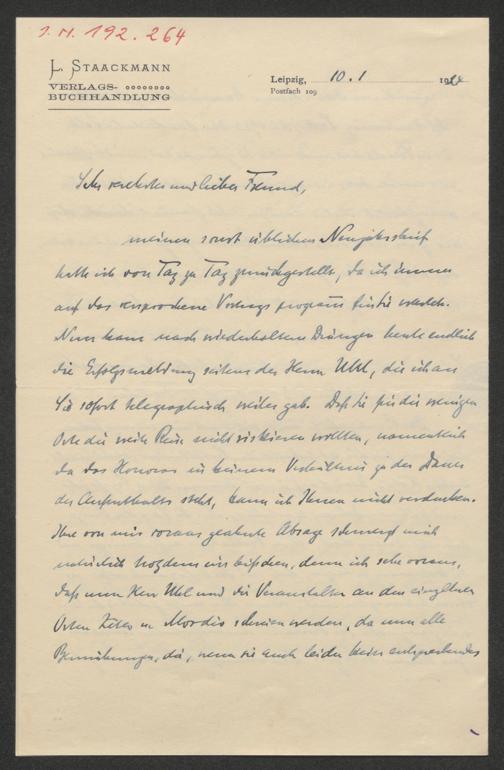 J. N. 192.264
L. STAACKMANN
VERLAGS-
BUCHHANDLUNG
Leipzig, 10. 1 19
Postfach 109
Sehr verehrter und lieber Freund,
meinen sonst üblichen Neujahrsbrief
hatte ich von Tag zu Tag zurückgestellt, da ich immer
auf das versprochene Vortragsprogramm für Sie wartete.
Nun kam nach wiederholtem Drängen heute endlich
die Erfolgsmeldung seitens des Herrn Uhl, die ich an
Sie sofort telegraphisch weiter gab. Daß Sie für die wenigen
Orte die weite Reise nicht riskieren wollten, namentlich
da das Honorar in keinem Verhältnis zu der Dauer
des Aufenthalts steht, kann ich Ihnen nicht verdenken.
Ihre von mir voraus geahnte Absage schmerzt mich
natürlich trotzdem denn ich sehe voraus,
daß nun Herr Uhl und die Veranstalter an den einzelnen
Orten Zeter u. Mordio schreien werden, da nun alle
Bemühungen, die, wenn sie auch leider kein entsprechendes